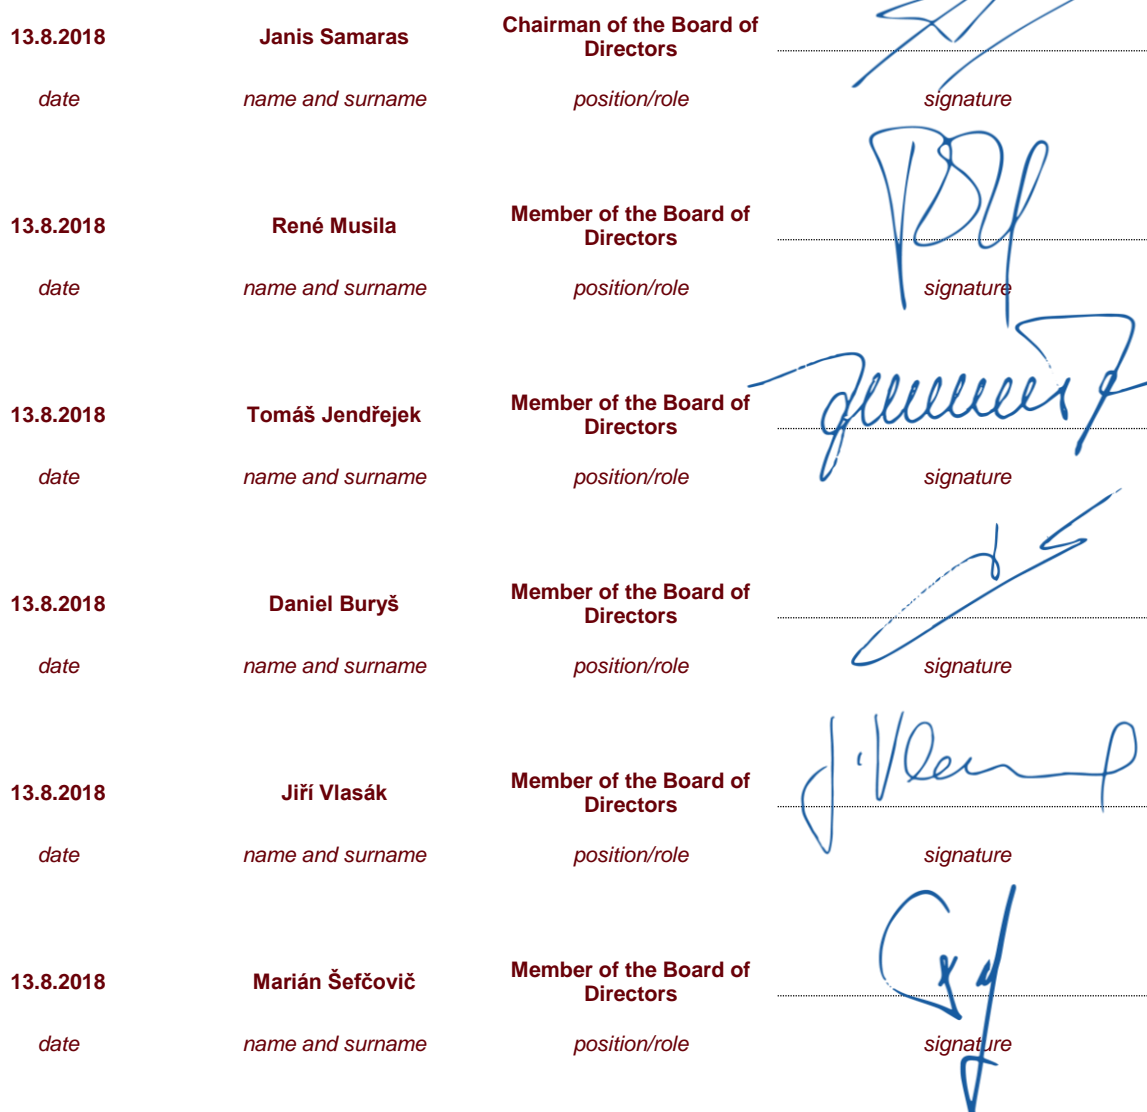 13.8.2018 Janis Samaras Chairman of the Board of Directors
date name and surname position/role signature
13.8.2018 René Musila Member of the Board of Directors
date name and surname position/role signature
13.8.2018 Tomáš Jendřejek Member of the Board of Directors
date name and surname position/role signature
13.8.2018 Daniel Buryš Member of the Board of Directors
date name and surname position/role signature
13.8.2018 Jiří Vlasák Member of the Board of Directors
date name and surname position/role signature
13.8.2018 Marián Šefčovič Member of the Board of Directors
date name and surname position/role signature